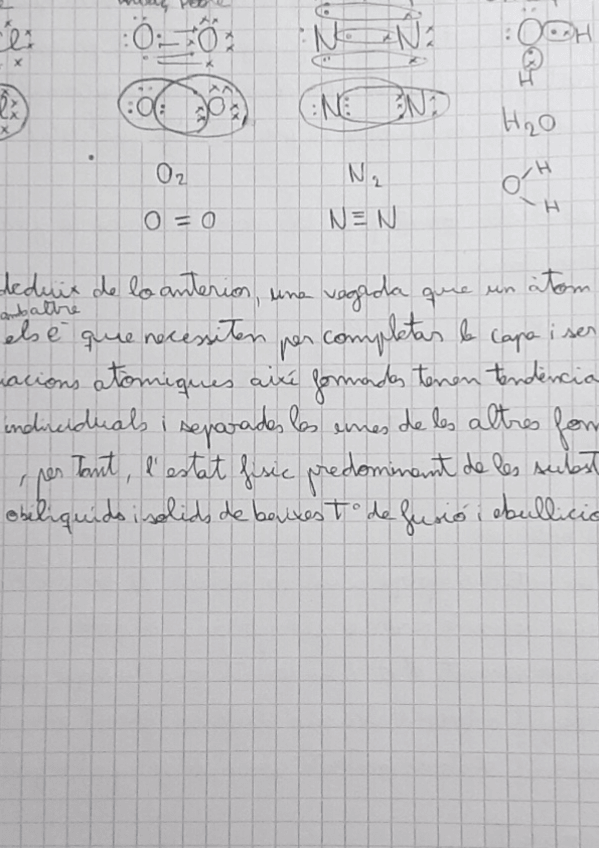 :O: O:
:N N:
:O: H
H
:O: O:
:N: N:
H2O
O2
N2
O H
H
O = O
N ≡ N
deduix de lo anterior, una vegada que un àtom
amb altre
els e- que necessiten per completar la capa i ser
acions atomiques així formades tenen tendència
individuals i separades les unes de les altres for
, per tant, l'estat físic predominant de les subst
líquids i solids de baixes Tº de fusió i ebullició